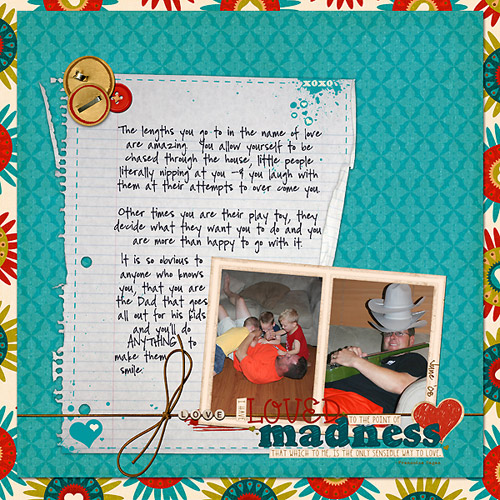 xoxo
The lengths you go to in the name of love
are amazing. You allow yourself to be
chased through the house, little people
literally nipping at you - & you laugh with
them at their attempts to over come you.
Other times you are their play toy, they
decide what they want you to do and you
are more than happy to go with it.
It is so obvious to
anyone who knows
you, that you are
the Dad that goes
all out for his kids
and you'll do
ANYTHING to
make them
smile.
June '08
LOVE
I HAVE
LOVED
TO THE POINT OF
madness
THAT WHICH TO ME, IS THE ONLY SENSIBLE WAY TO LOVE.